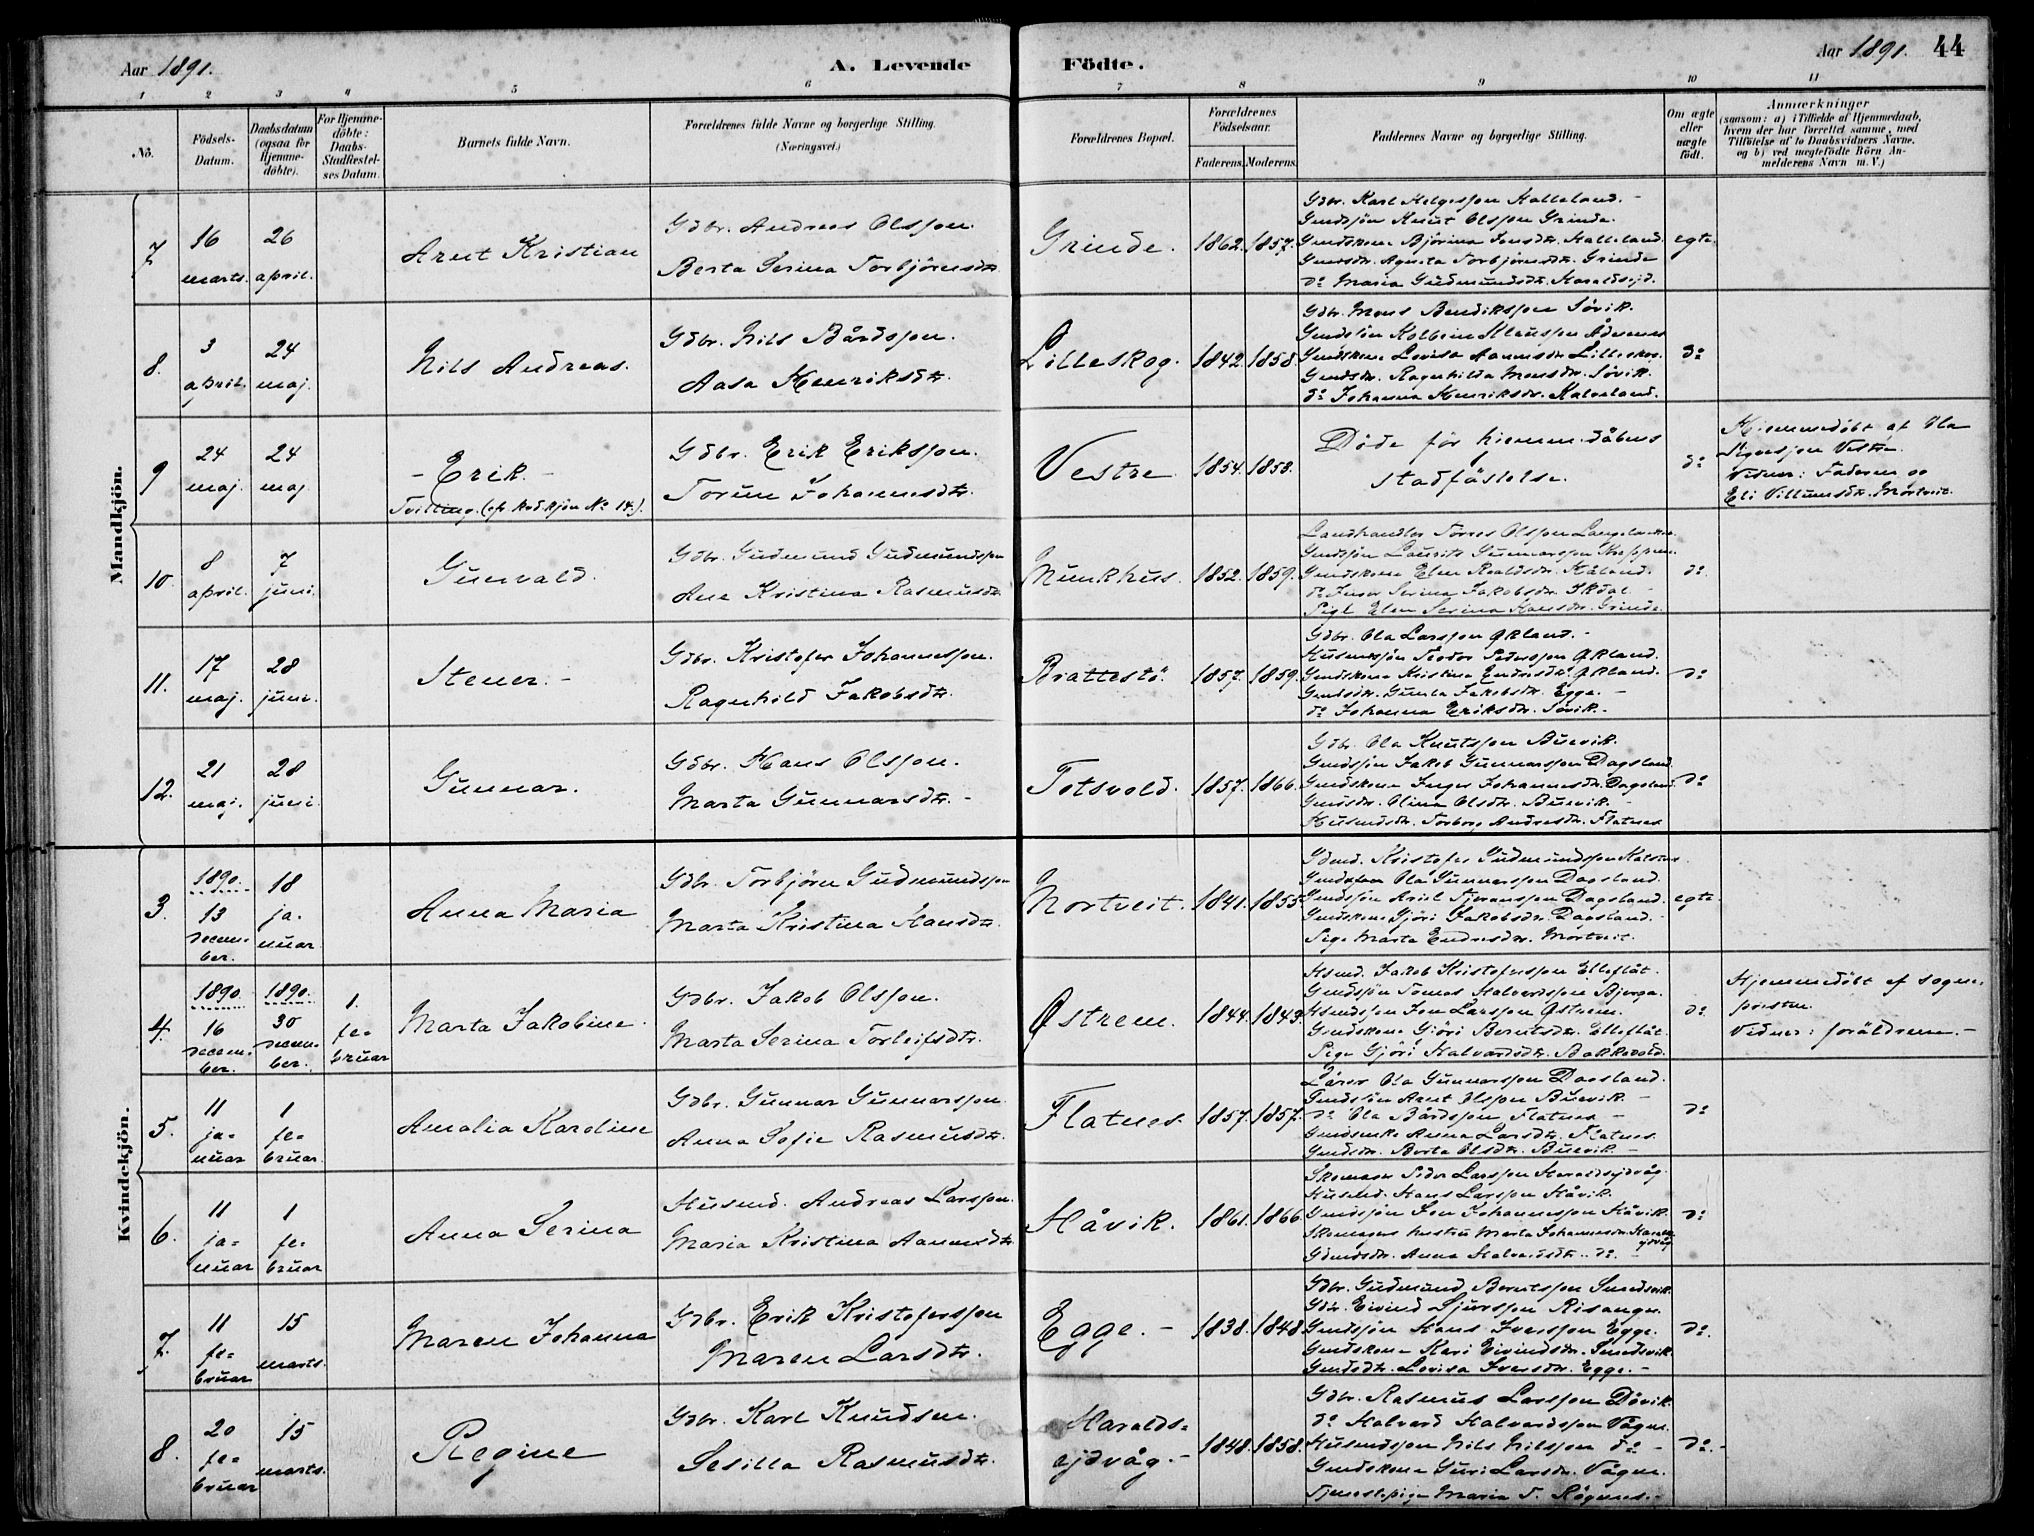 Aar 1891.
A. Levende Födte.
Aar 1891. 44
1 2 3 4 5 6 7 8 9 10 11
No.
Födsels-Datum.
Daabsdatum (ogsaa for Hjemmedöbte).
For Hjemmedöbte: Daabs-Stadfæstelses Datum.
Barnets fulde Navn.
Forældrenes fulde Navne og borgerlige Stilling. (Næringsvei.)
Forældrenes Bopæl.
Forældrenes Födselsaar.
Faderens. Moderens.
Faddernes Navne og borgerlige Stilling.
Om ægte eller uægte födt.
Anmærkninger
(saasom: a) i Tilfælde af Hjemmedaab, hvem der har forrettet samme, med Tilföielse af to Daabsvidners Navne, og b) ved uægtefödte Börn Anmelderens Navn m. V.)
Mandkjön.
7
16 marts.
26 april.
Arnt Kristian
Gdbr. Andreas Olsson.
Berta Serina Torbjörnsdtr.
Grinde.
1862. 1857.
Gdbr. Karl Helgesson Halleland.
Gmdssön Knut Olsson Grinde.
Gmdskone Björina Jonsdtr. Halleland.
Gmdsdtr. Agneta Torbjörnsdtr. Grinde
do Maria Gudmundsdtr. Haraldsejd.
egte.
8.
3 april.
24 maj.
Nils Andreas.
Gdbr. Nils Bårdsson.
Aasa Henriksdtr.
Lilleskog.
1842. 1858.
Gdbr. Mons Bendiksson Sövik.
Gmdskone Lovisa Aanensdtr. Lilleskog.
Gmdsdtr. Ragnhilda Monsdtr. Sövik.
do Johanna Henriksdtr. Kalveland.
do
9
24 maj.
24 maj
- Erik -
Tvilling. (cfr. kvdkjön No 14.).
Gdbr. Erik Eriksson.
Torun Johannesdtr.
Vestre
1854. 1858.
Döde för hjemmedåbens
stadfästelse.
do
Hjemmedöbt af Ola
Vestre.
Vidner: Faderen og
Eli Villumsdtr. Mörtveit.
10.
8 april.
7 juni.
Gunvald.
Gdbr. Gudmund Gudmundsson
Ane Kristina Rasmusdtr.
Munkhus.
1852. 1859.
Landhandler Torres Olsson
Gmdssön Laurits Gunnarsson
Gmdskone Elen Roaldsdtr. Håland.
do Inger Serina Jakobsdtr. Ekdal
Pige Elen Serina Hansdtr. Grinde.
do.
11.
17 maj.
28 juni.
Stener. -
Gdbr. Kristofer Johannesson.
Ragnhild Jakobsdtr.
Brattestö.
1857. 1859.
Gdbr. Ola Larsson Økland. -
Husmdssön Teodor Pedersson Økland.
Gmdskone Kristina Endresdtr. Økland.
Gmdsdtr. Gunla Jakobsdtr. Egge. -
do Johanna Eriksdtr. Sövik. -
do
12.
21 maj.
28 juni.
Gunnar.
Gdbr. Hans Olsson.
Marta Gunnarsdtr. -
Totsvold.
1857. 1866.
Gdbr. Ola Knutsson Buevik.
Gmdssön Jakob Gunnarsson Dagsland.
Gmdskone Inger Johannesdtr. Dagsland.
Gmdsdtr. Olina Olsdtr. Buevik. -
Husmdsdtr. Torborg Andreasdtr. Flatnes
do
Kvindekjön.
3.
1890.
13 december.
18 januar.
Anna Maria
Gdbr. Torbjörn Gudmundsson
Marta Kristina Hansdtr.
Mortveit.
1841. 1855.
Gdmd. Kristofer Gudmundsson
Ola Gunnarsson Dagsland.
Gmdssön Dagsland.
Gmdskone Gjöri Jakobsdtr. Dagsland. -
Pige Marta Endresdtr. Mörtveit.
egte.
4.
1890.
16 december.
1890.
30 december.
1. februar
Marta Jakobine.
Gdbr. Jakob Olsson.
Marta Serina Torleifsdtr.
Østrem.
1844. 1843.
Husmd. Jakob Kristofersson Elleflåt.
Gmdssön Tomas Halvardsson Bjerga.
Husmdsson Jon Larsson Østrem.
Gmdskone Gjöri Berntsdtr. Elleflåt.
Pige Gjöri Halvardsdtr. Bakkevold.
do.
Hjemmedöbt af sogne-
presten.
Vidner: foräldrene. -
5.
11 januar
1 februar.
Amalia Karoline
Gdbr. Gunnar Gunnarsson.
Anna Sofie Rasmusdtr.
Flatnes.
1857. 1857.
Lärer Ola Gunnarsson Dagsland.
Gmdssön Arnt Olsson Buevik. -
do Ola Bårdsson Flatnes -
Gmdsenke Anna Larsdtr. Flatnes.
Gmdsdtr. Berta Olsdtr. Buevik -
do
6.
11 januar
1 februar
Anna Serina
Husmd. Andreas Larsson.
Maria Kristina Aanensdtr.
Håvik.
1861. 1866.
Skomager Peder Larsson Haraldsejdvåg.
Husmd. Hans Larsson Håvik.
Gmdssön Jon Johannesson Håvik.
Skomagers hustru Marta Johannesdtr. Haraldsejdvåg
Gdmdsdtr. Anna do.
do
7.
11 februar
15 marts.
Maren Johanna
Gdbr. Erik Kristofersson
Maren Larsdtr.
Egge. -
1838. 1848.
Gdbr. Gudmund Berntsson Sundsvik.
Gdbr. Eivind Sjursson Risanger.
Gmdssön Hans Iversson Egge.
Gmdskone Kari Eivindsdtr. Sundsvik.
Gmdsdtr. Lovisa Iversdtr. Egge. -
do.
8.
20 februar
15 marts.
Regine
Gdbr. Karl Knudsen.
Sesilla Rasmusdtr.
Haralds-
ejdvåg. -
1848. 1858.
Gdbr. Rasmus Larsson Dövik.
do Halvard Halvardsson Vågen.
Husmdsson Nils Nilsson do -
Gmdskone Guri Larsdtr. Vågen.
Tjenestepige Maria T. Rögenes. -
do. -